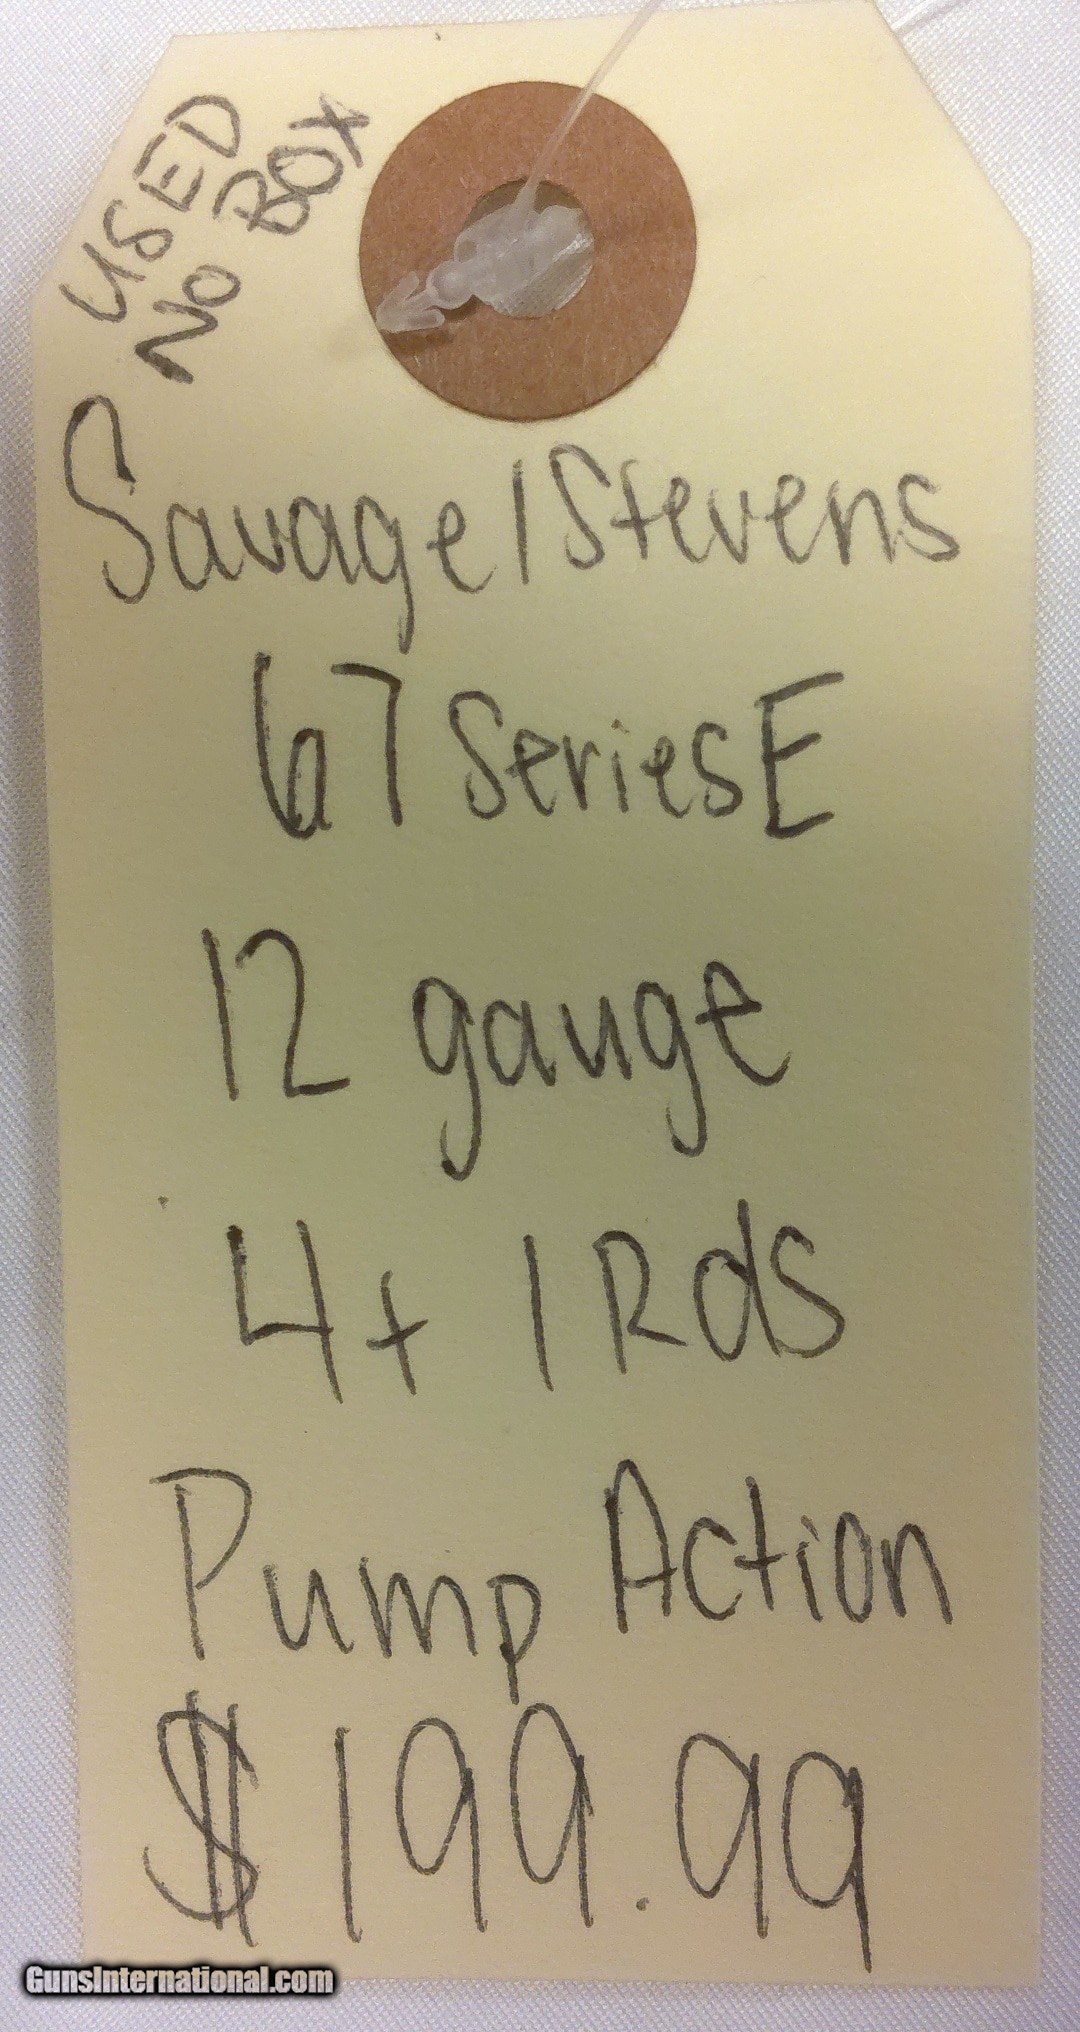 USED
NO BOX
Savage/Stevens
67 Series E
12 gauge
4+1 Rds
Pump Action
$199.99
GunsInternational.com